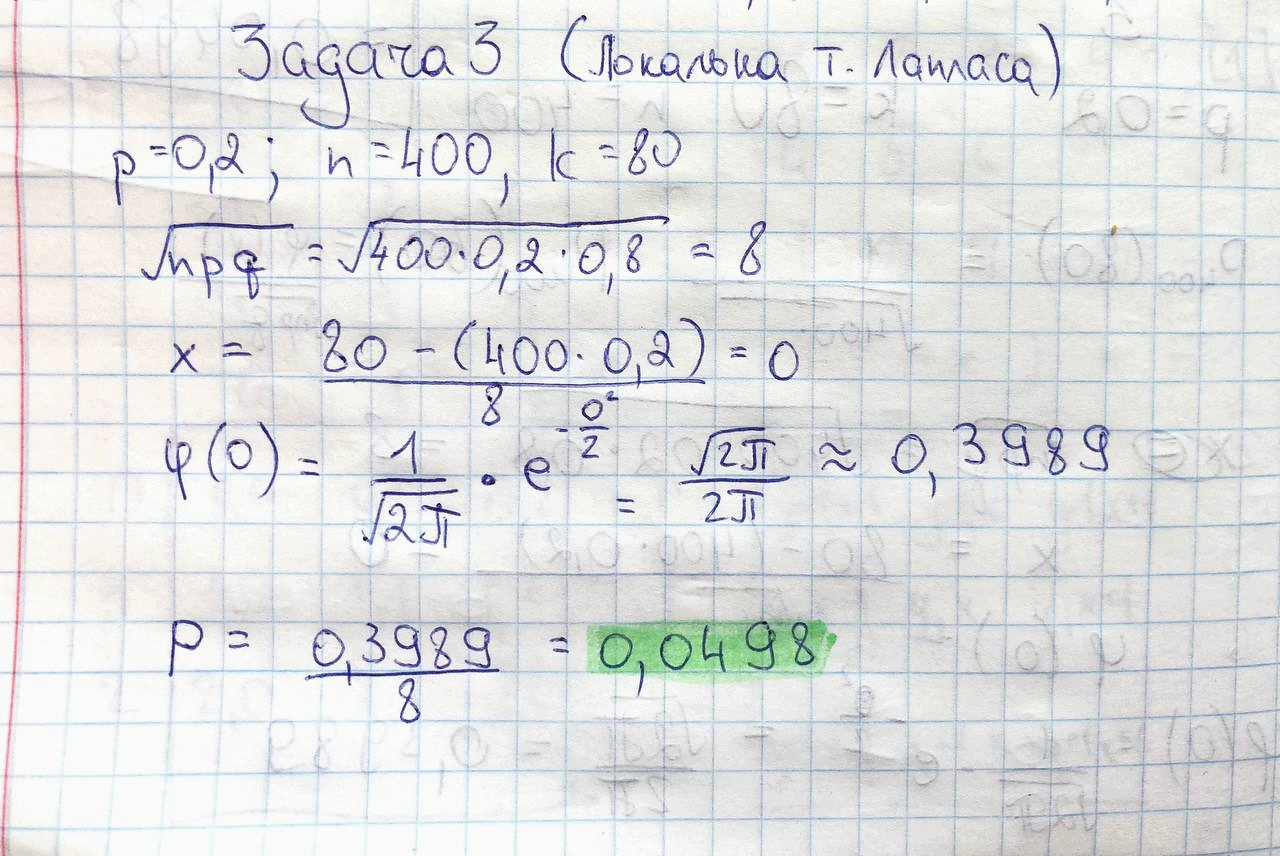 Задача 3 (Локальна т. Лапласа)
p = 0,2; n = 400, k = 80
√npq = √400·0,2·0,8 = 8
x = 80 - (400·0,2) / 8 = 0
φ(0) = 1/√2π · e^(-0²/2) = √2π/2π ≈ 0,3989
P = 0,3989/8 = 0,0498